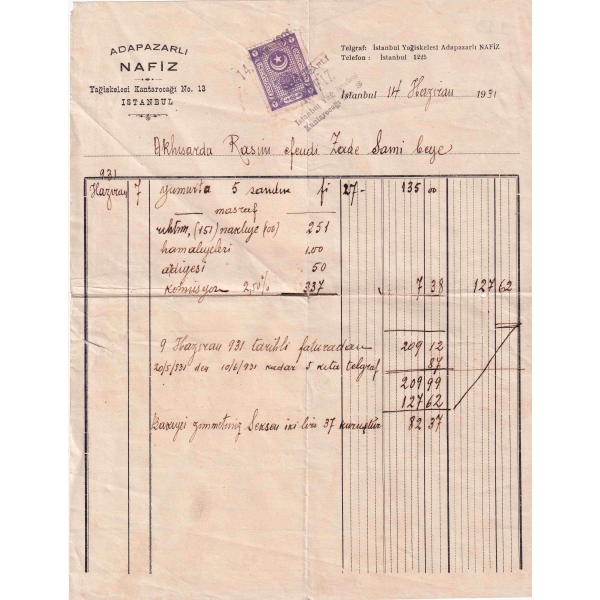 ADAPAZARLI
NAFİZ
Yağiskelesi Kantarocağı No. 13
İSTANBUL
Telgraf: İstanbul Yağiskelesi Adapazarlı NAFİZ
Telefon: İstanbul 1225
İstanbul 14 Haziran 1931
Akhisarda Rasim efendi Zade Sami beye
931
Haziran 7 yumurta 5 sandık fi 27- 135 00
masraf
rıhtım, (151) nakliye (100) 251
hamaliyeleri 1.00
ardiyesi 50
komisyon 2,50% 337 7 38 127 62
9 Haziran 931 tarihli faturadan 209 12
20/5/931 den 10/6/931 kadar 5 kıta telgraf 87
209 99
127 62
Bakayei zimmetiniz Seksen iki lira 37 kuruştur 82 37